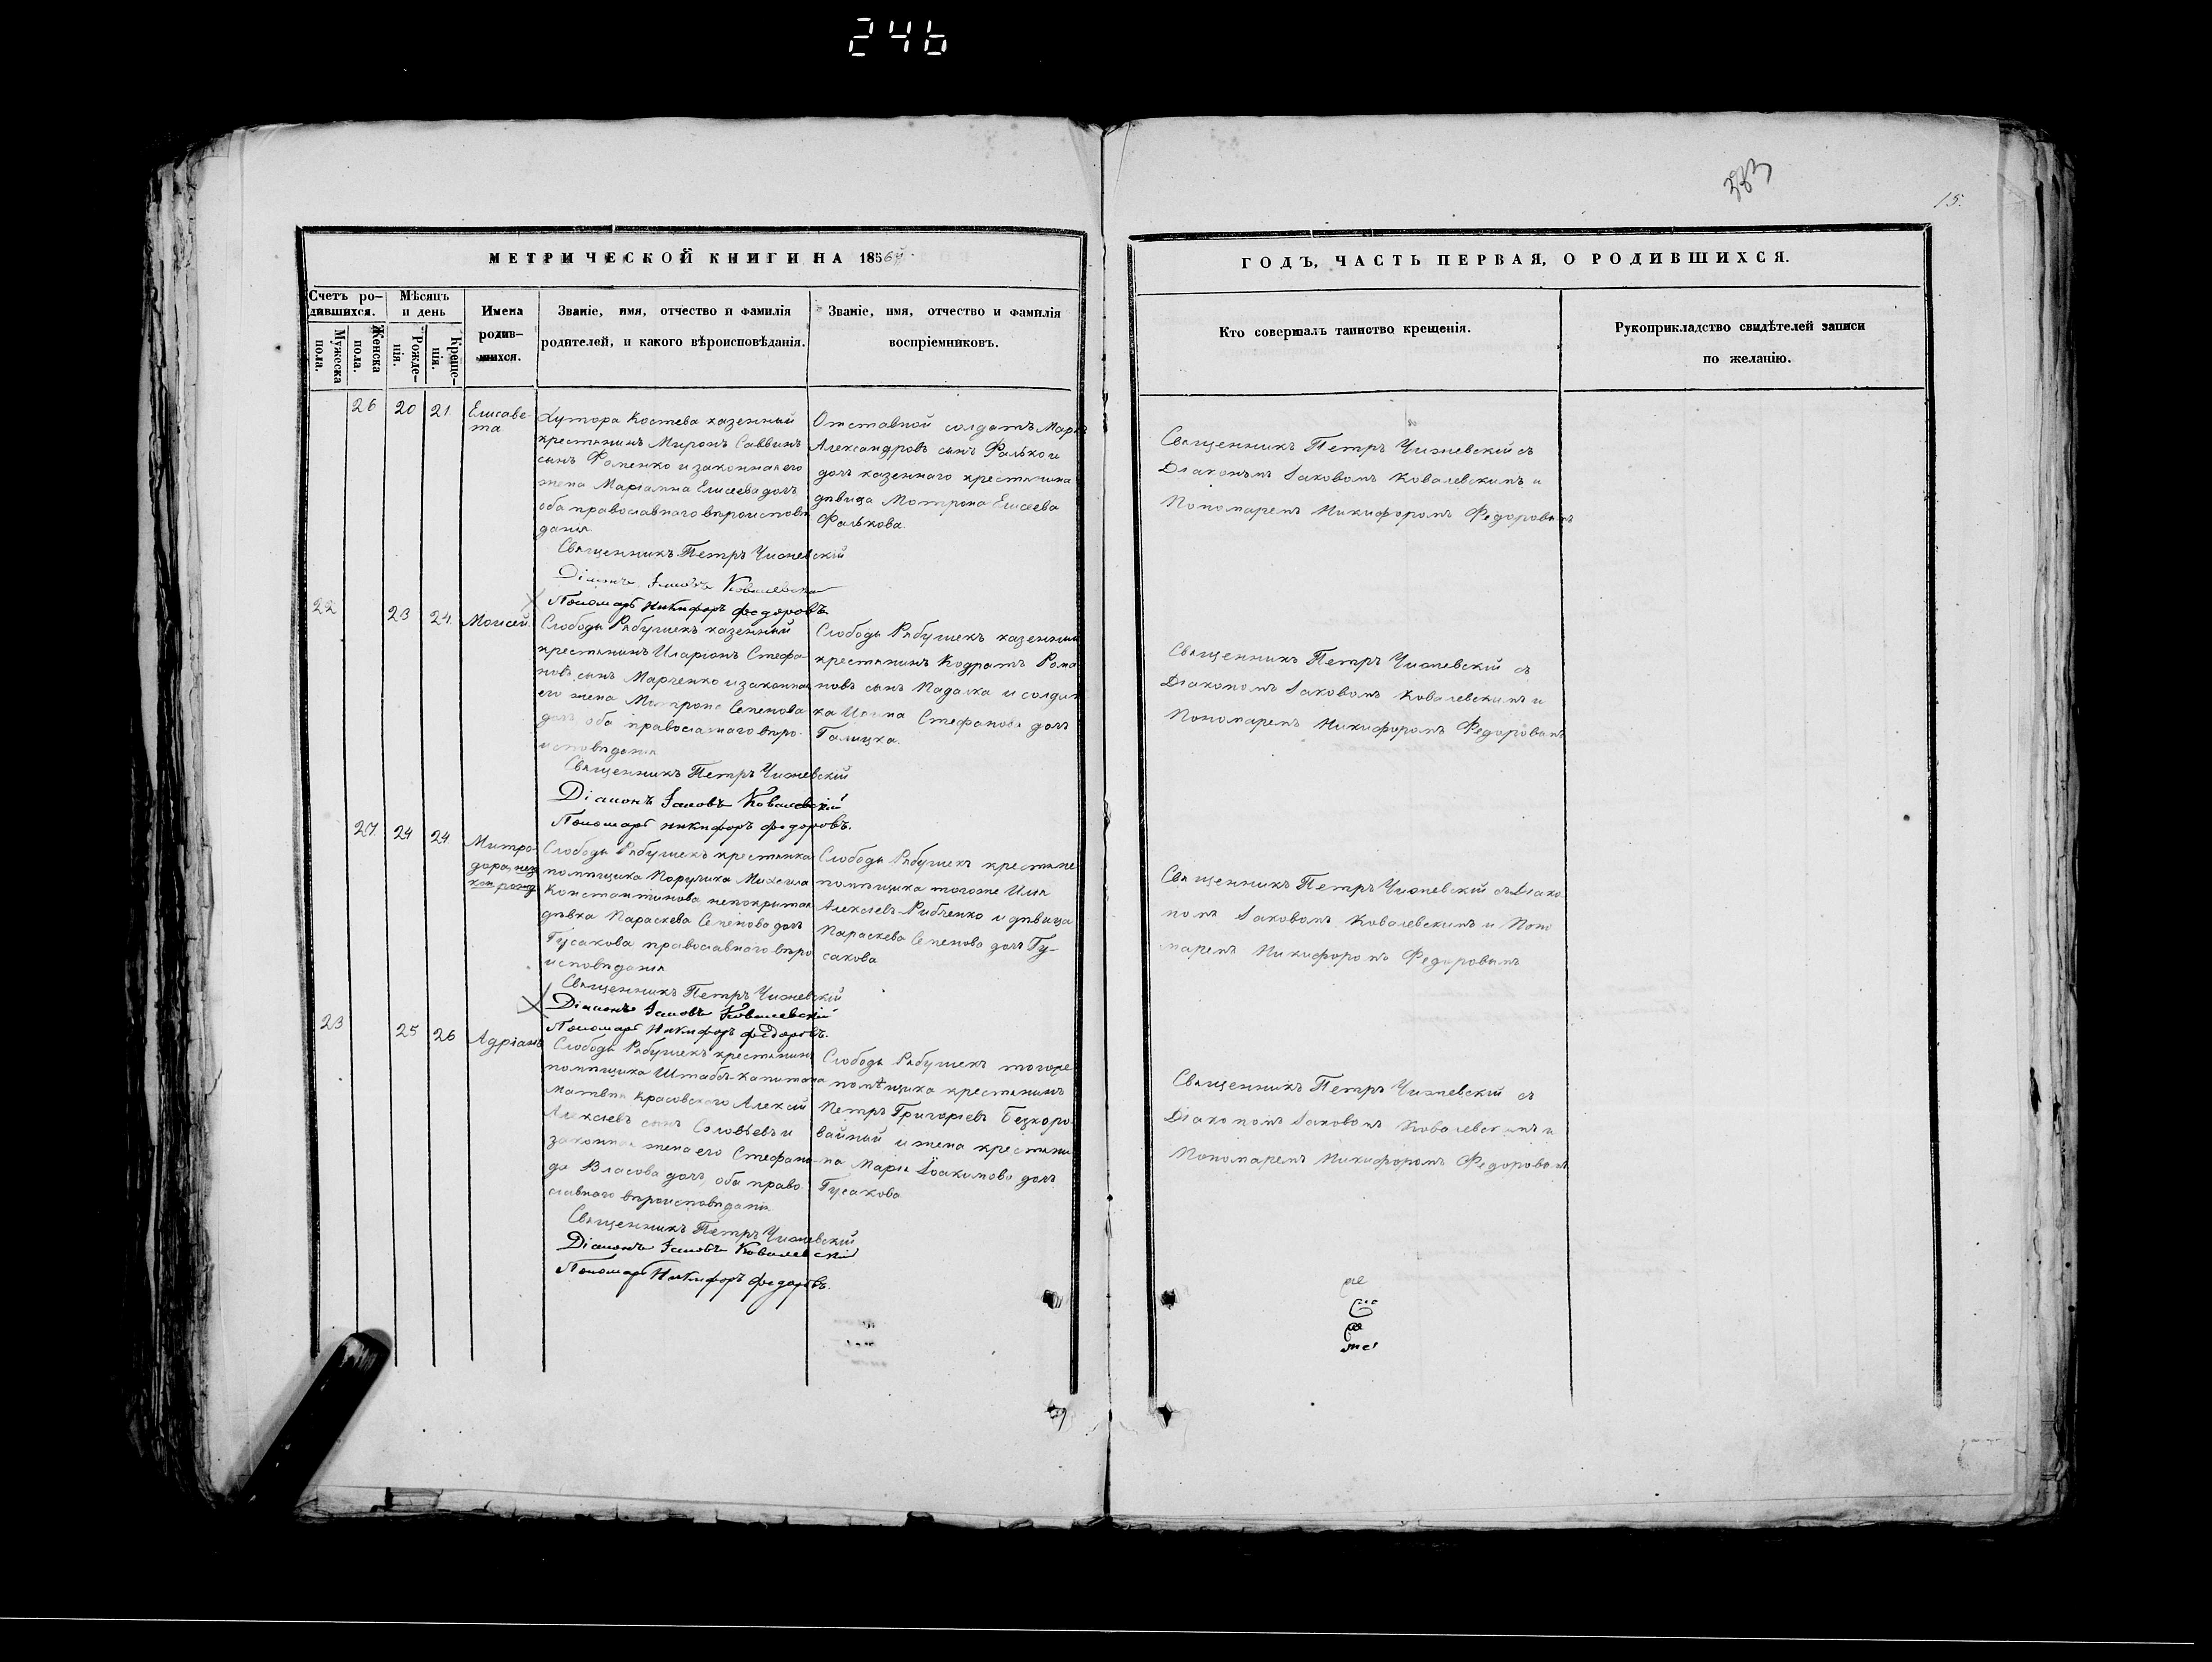 246
15.
МЕТРИЧЕСКОЙ КНИГИ НА 1856й
Счетъ родившихся.
Мужеска пола.
Женска пола.
Мѣсяцъ и день
Рожденія.
Крещенія.
Имена родившихся.
Званіе, имя, отчество и фамилія
родителей, и какого вѣроисповѣданія.
Званіе, имя, отчество и фамилія
воспріемниковъ.
26 20 21. Елисаве-
та
Хутора Костева казенный
крестьянинъ Миронъ Саввинъ
сынъ Фоменко и законная его
жена Маріамна Елисеева дочь
оба православнаго вѣроисповѣ
данія
Отставной солдатъ Марк
Александровъ сынъ Фалько и
дочь казеннаго крестьянина
дѣвица Мотрона Елисеева
Фалькова.
Священникъ Петръ Чижевскій
Діаконъ Іаковъ Ковалевскій
Пономарь Никифоръ Федоровъ.
22 23 24. Моисей.
Слободы Рябушекъ казенный
крестьянинъ Иларіонъ Стефа-
новъ сынъ Марченко и законная
его жена Мотрона Семенова
дочь, оба православнаго вѣро-
исповѣданія
Слободы Рябушекъ казенный
крестьянинъ Кодратъ Рома
новъ сынъ Падалка и солдат
ка Стефанова дочь
Галицка.
Священникъ Петръ Чижевскій
Діаконъ Іаковъ Ковалевскій
Пономарь Никифоръ Федоровъ.
27. 24 24. Митро-
дора, неза
кон рожд
Слободы Рябушекъ крестьянка
помѣщика Поручика Михаила
Константинова непокрытая
дѣвка Параскева Семенова дочь
Гусакова православнаго вѣро
исповѣданія
Слободы Рябушекъ крестьяне
помѣщика тогоже Илія
Алексѣевъ Рибченко и дѣвица
Параскева Семенова дочь Гу-
сакова
Священникъ Петръ Чижевскій
Діаконъ Іаковъ Ковалевскій
Пономарь Никифоръ Федоровъ.
23 25 26 Адріанъ
Слободы Рябушекъ крестьянинъ
помѣщика Штабсъ-капитана
Матвѣя Красовского Алексій
Алексѣевъ сынъ Соловьевъ и
законная жена его Стефани-
да Власова дочь, оба право
славнаго вѣроисповѣданія
Слободы Рябушекъ тогоже
помѣщика крестьянинъ
Петръ Григоріевъ Безкоро-
вайный и жена крестьяни
на Марія Іоакимова дочь
Гусакова
Священникъ Петръ Чижевскій
Діаконъ Іаковъ Ковалевскій
Пономарь Никифоръ Федоровъ.
ГОДЪ, ЧАСТЬ ПЕРВАЯ, О РОДИВШИХСЯ.
Кто совершалъ таинство крещенія.
Рукоприкладство свидѣтелей записи
по желанію.
Священникъ Петръ Чижевскій съ
Діакономъ Іаковомъ Ковалевскимъ и
Пономаремъ Никифоромъ Федоровымъ
Священникъ Петръ Чижевскій съ
Діакономъ Іаковомъ Ковалевскимъ и
Пономаремъ Никифоромъ Федоровымъ
Священникъ Петръ Чижевскій съ Діако
номъ Іаковомъ Ковалевскимъ и Поно
маремъ Никифоромъ Федоровымъ
Священникъ Петръ Чижевскій съ
Діакономъ Іаковомъ Ковалевскимъ и
Пономаремъ Никифоромъ Федоровымъ